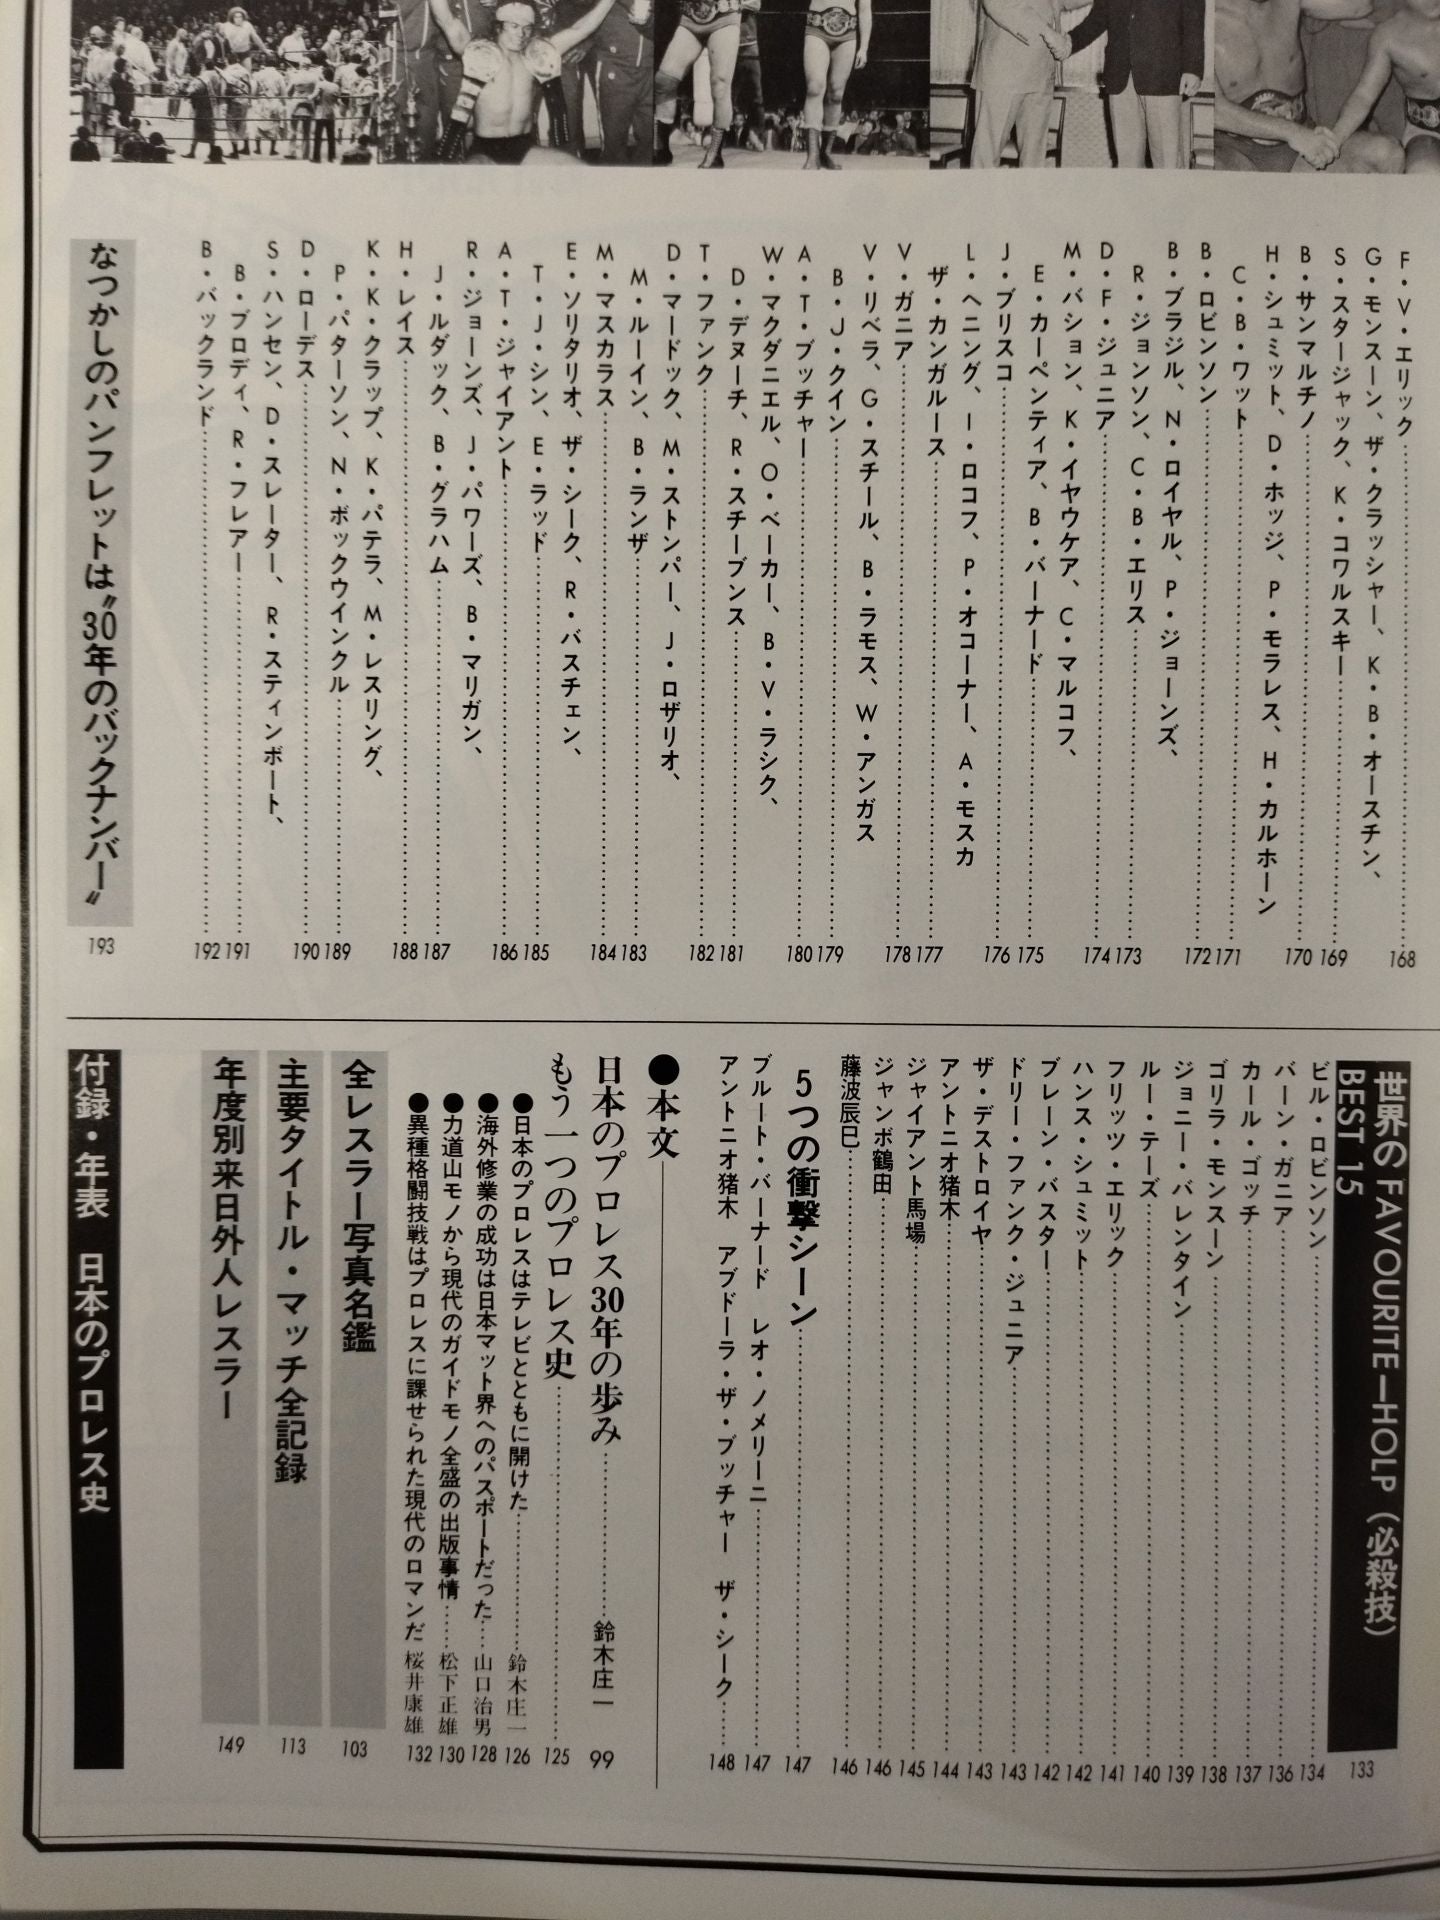 F・V・エリック 168
G・モンスーン、ザ・クラッシャー、K・B・オースチン、
S・スタージャック、K・コワルスキー 169
B・サンマルチノ 170
H・シュミット、D・ホッジ、P・モラレス、H・カルホーン
C・B・ワット 171
B・ロビンソン 172
B・ブラジル、N・ロイヤル、P・ジョーンズ、
R・ジョンソン、C・B・エリス 173
D・F・ジュニア 174
M・バション、K・イヤウケア、C・マルコフ、
E・カーペンティア、B・バーナード 175
J・ブリスコ 176
L・ヘニング、I・ロコフ、P・オコーナー、A・モスカ
ザ・カンガルース 177
V・ガニア 178
V・リベラ、G・スチール、B・ラモス、W・アンガス
B・J・クイン 179
A・T・ブッチャー 180
W・マクダニエル、O・ベーカー、B・V・ラシク、
D・デヌーチ、R・スチーブンス 181
T・ファンク 182
D・マードック、M・ストンパー、J・ロザリオ、
M・ルーイン、B・ランザ 183
M・マスカラス 184
E・ソリタリオ、ザ・シーク、R・バスチェン、
T・J・シン、E・ラッド 185
A・T・ジャイアント 186
R・ジョーンズ、J・パワーズ、B・マリガン、
J・ルダック、B・グラハム 187
H・レイス 188
K・K・クラップ、K・パテラ、M・レスリング、
P・パターソン、N・ボックウインクル 189
D・ローデス 190
S・ハンセン、D・スレーター、R・スティンボート、
B・ブロディ、R・フレアー 191
B・バックランド 192
なつかしのパンフレットは〝30年のバックナンバー〟 193
世界のFAVOURITE―HOLP（必殺技）
BEST 15 133
ビル・ロビンソン 134
バーン・ガニア 136
カール・ゴッチ 137
ゴリラ・モンスーン 138
ジョニー・バレンタイン 139
ルー・テーズ 140
フリッツ・エリック 141
ハンス・シュミット 142
ブレーン・バスター 142
ドリー・ファンク・ジュニア 143
ザ・デストロイヤ 143
アントニオ猪木 144
ジャイアント馬場 145
ジャンボ鶴田 146
藤波辰巳 146
5つの衝撃シーン 147
ブルート・バーナード レオ・ノメリーニ 147
アントニオ猪木 アブドーラ・ザ・ブッチャー ザ・シーク 148
●本文
日本のプロレス30年の歩み 鈴木庄一 99
もう一つのプロレス史 125
●日本のプロレスはテレビとともに開けた 鈴木庄一 126
●海外修業の成功は日本マット界へのパスポートだった 山口治男 128
●力道山モノから現代のガイドモノ全盛の出版事情 松下正雄 130
●異種格闘技戦はプロレスに課せられた現代のロマンだ 桜井康雄 132
全レスラー写真名鑑 103
主要タイトル・マッチ全記録 113
年度別来日外人レスラー 149
付録・年表 日本のプロレス史